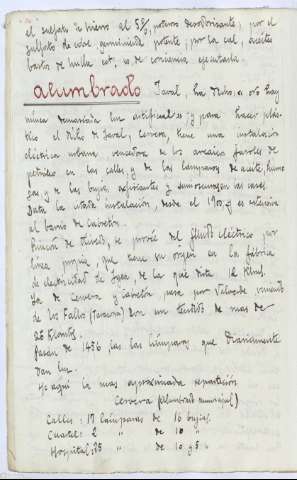 el sulfato de hierro al 5%, potencia desodorisante; por el
sulfato de cobre germinicida potente; por la cal, aceites
bastos de hulla ect, es de conveniencia ejecutarla.
alumbrado Javal, ha dicho, es oro hay
nunca demasiada luz artificial; y para hacer
el dicho de Javal, Cervera, tiene una instalacion
electrica urbana vencedora de los arcaicos faroles de
petroleo en las calles, y de las lamparas de aceite,
gas y de las bujias, en las casas.
Data la citada instalacion, desde el 1900, y es extensiva
al barrio de Cabretón.
Rincon de Olivedo, se provee del fluido electrico por
linea propia, que tiene su origen en la fábrica
de electricidad de Igea, de la que dista 12 Klms.
La de Cervera y Cabretón, pasa por Valverde viniendo
de Los Fallos (Tarazona) con un tendido de mas de
25 Klomts.
Pasan de 1486, las las lámparas que diariamente
dan luz.
He aqui la mas aproximada reparticion
Cervera (alumbrado municipal)
Calles: 17 lámparas de 16 bujias.
Cuartel: 2 " de 10 "
Hospital: 25 " de 10 y 5 "